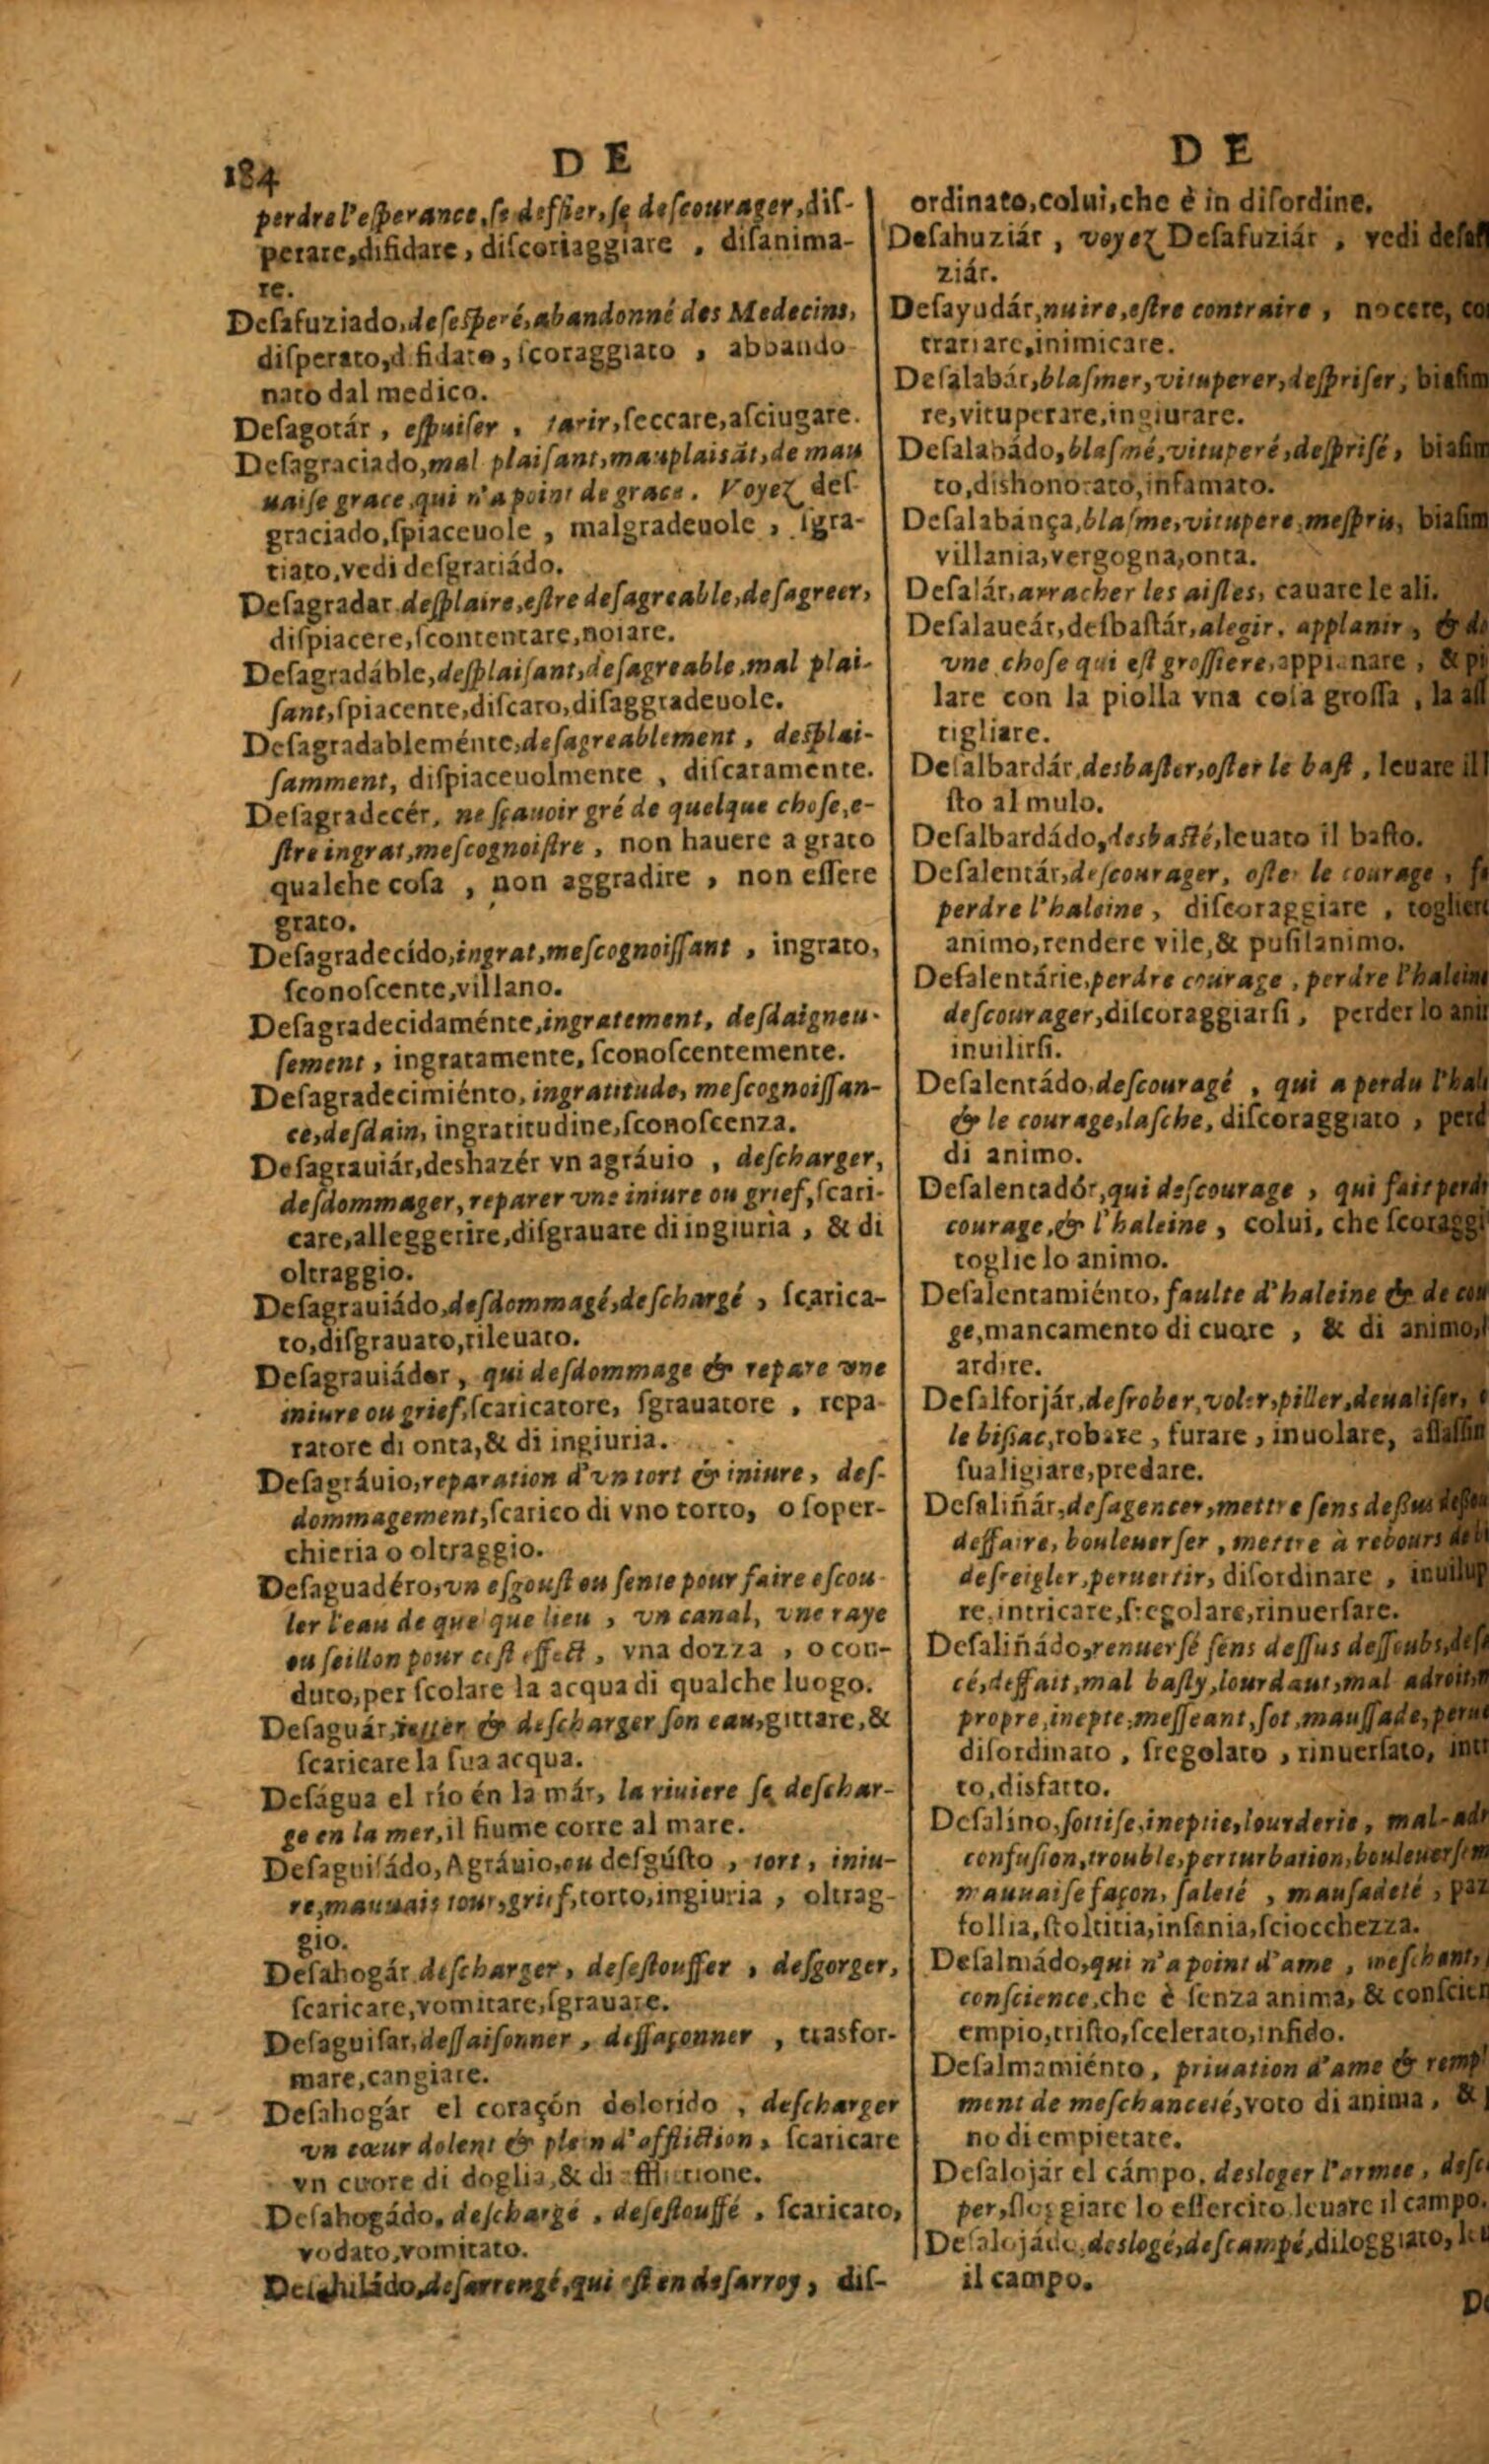 184
D E
perdre l'esperance, se deffier, se descourager, dis-
perare, difidare, discoriaggiare, disanima-
re.
Desafuziado, desesperé, abandonné des Medecins,
disperato, difidato, scoraggiato, abbando-
nato dal medico.
Desagotár, espuiser, tarir, seccare, asciugare.
Desagraciado, mal plaisant, mauplaisãt, de mau
uaise grace, qui n'a point de grace. Voyez des-
graciado, spiaceuole, malgradeuole, sgra-
tiato, vedi desgratiádo.
Desagradar desplaire, estre desagreable, desagreer,
dispiacere, scontentare, noiare.
Desagradáble, desplaisant, desagreable, mal plai-
sant, spiacente, discaro, disaggradeuole.
Desagradableménte, desagreablement, desplai-
samment, dispiaceuolmente, discaramente.
Desagradecér, ne sçauoir gré de quelque chose, e-
stre ingrat, mescognoistre, non hauere a grato
qualche cosa, non aggradire, non essere
grato.
Desagradecído, ingrat, mescognoissant, ingrato,
sconoscente, villano.
Desagradecidaménte, ingratement, desdaigneu-
sement, ingratamente, sconoscentemente.
Desagradecimiénto, ingratitude, mescognoissan-
ce, desdain, ingratitudine, sconoscenza.
Desagrauiár, deshazér vn agráuio, descharger,
desdommager, reparer vne iniure ou grief, scari-
care, alleggerire, disgrauare di ingiuria, & di
oltraggio.
Desagrauiádo, desdommagé, deschargé, scarica-
to, disgrauato, rileuato.
Desagrauiádor, qui desdommage & repare vne
iniure ou grief, scaricatore, sgrauatore, repa-
ratore di onta, & di ingiuria.
Desagráuio, reparation d'vn tort & iniure, des-
dommagement, scarico di vno torto, o soper-
chieria o oltraggio.
Desaguadéro, vn esgoust ou sente pour faire escou-
ler l'eau de quelque lieu, vn canal, vne raye
ou seillon pour cest effect, vna dozza, o con-
duto, per scolare la acqua di qualche luogo.
Desaguár, ietter & descharger son eau, gittare, &
scaricare la sua acqua.
Deságua el río én la már, la riuiere se deschar-
ge en la mer, il fiume corre al mare.
Desaguisádo, Agráuio, ou desgústo, tort, iniu-
re, mauuais tour, grief, torto, ingiuria, oltrag-
gio.
Desahogár descharger, desestouffer, desgorger,
scaricare, vomitare, sgrauare.
Desaguisar, dessaisonner, deffaçonner, trasfor-
mare, cangiare.
Desahogár el coraçón dolorido, descharger
vn cœur dolent & plein d'affliction, scaricare
vn cuore di doglia, & di afflittione.
Desahogádo, deschargé, desestouffé, scaricato,
vodato, vomitato.
Desahiládo, desarrengé, qui est en desarroy, dis-
D E
ordinato, colui, che è in disordine.
Desahuziár, voyez Desafuziár, vedi
ziár.
Desayudár, nuire, estre contraire, nocere,
trariare, inimicare.
Desalabár, blasmer, vituperer, despriser,
re, vituperare, ingiurare.
Desalabádo, blasmé, vituperé, desprisé,
to, dishonorato, infamato.
Desalabánça, blasme, vitupere, mespris,
villania, vergogna, onta.
Desalár, arracher les aisles, cauare le ali.
Desalaueár, desbastár, alegir, applanir, &
vne chose qui est grossiere, appianare, &
lare con la piolla vna cosa grossa, la
tigliare.
Desalbardár, desbaster, oster le bast, leuare
sto al mulo.
Desalbardádo, desbasté, leuato il basto.
Desalentár, descourager, oster le courage,
perdre l'haleine, discoraggiare,
animo, rendere vile, & pusilanimo.
Desalentárse, perdre courage, perdre
descourager, discoraggiarsi, perder lo
inuilirsi.
Desalentádo, descouragé, qui a perdu
& le courage, lasche, discoraggiato,
di animo.
Desalentadór, qui descourage, qui fait
courage, & l'haleine, colui, che
toglie lo animo.
Desalentamiénto, faulte d'haleine & de
ge, mancamento di cuore, & di animo,
ardire.
Desalforjár, desrober, voler, piller, deualiser,
le bissac, robare, furare, inuolare,
sualigiare, predare.
Desaliñár, desagencer, mettre sens dessus
deffaire, bouleuerser, mettre à rebours
desreigler, peruertir, disordinare,
re, intricare, sregolare, rinuersare.
Desaliñádo, renuersé sens dessus dessoubs,
cé, deffait, mal basty, lourdaut, mal adroit,
propre, inepte, messeant, sot, maussade,
disordinato, sregolato, rinuersato,
to, disfatto.
Desalíno, sottise, ineptie, lourderie,
confusion, trouble, perturbation,
mauuaise façon, saleté, mausadeté,
follia, stoltitia, insania, sciocchezza.
Desalmádo, qui n'a point d'ame, meschant,
conscience, che è senza anima, &
empio, tristo, scelerato, infido.
Desalmamiénto, priuation d'ame &
ment de meschanceté, voto di anima, &
no di empietate.
Desalojár el cámpo, desloger l'armee,
per, sloggiare lo essercito leuare il campo.
Desalojádo, deslogé, descampé, diloggiato,
il campo.